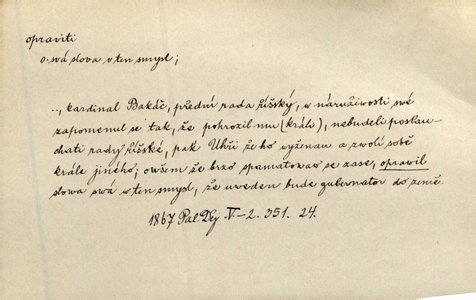 opraviti
o. svá slova v ten smysl;
.., kardinal Bakáč, přední rada říšský, w náruživosti swé
zapomenul se tak, že pohrozil mu (králi), nebudeli poslau-
chati rady říšské, pak Uhři že ho wyženau a zwolí sobě
krále jiného; owšem že brzo spamatowaw se zase, oprawil
slowa swá w ten smysl, že uweden bude gubernátor do země.
1867 Pal. Děj. V-2. 351. 24.